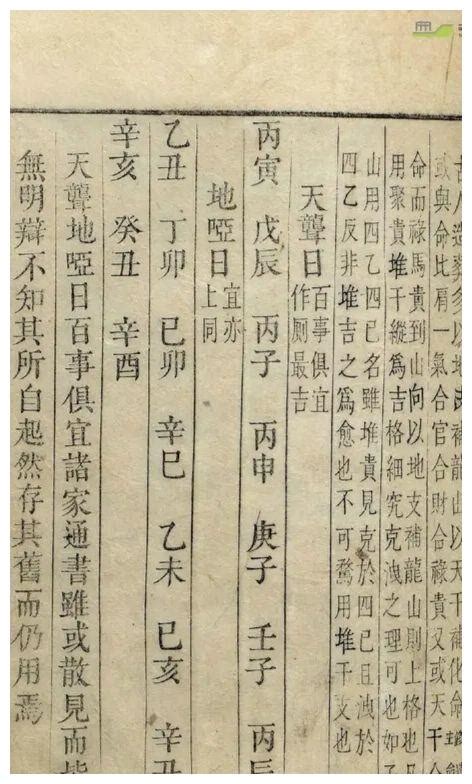 古人造葬多以地支補龍山以天干補化命
或與命比肩一氣合官合財合祿貴又或天干合
命而祿馬貴到山向以地支補龍山則上格也凡
用聚貴堆干縱爲吉格細究克洩之理可也如
山用四乙四巳名雖堆貴見克於四巳且洩於
四乙反非堆吉之爲愈也不可騖用堆干支也
天聾日 百事俱宜
作廁最吉
丙寅 戊辰 丙子 丙申 庚子 壬子 丙辰
地啞日 宜亦
上同
乙丑 丁卯 已卯 辛巳 乙未 已亥 辛丑
辛亥 癸丑 辛酉
天聾地啞日百事俱宜諸家通書雖或散見而皆
無明辯不知其所自起然存其舊而仍用焉